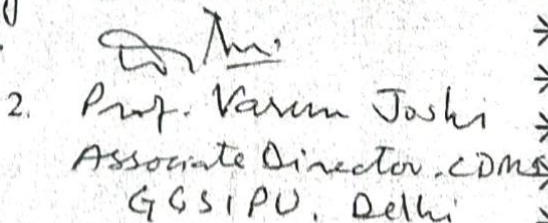 2. Prof. Varun Joshi
Associate Director. CDMS
GGSIPU. Delhi